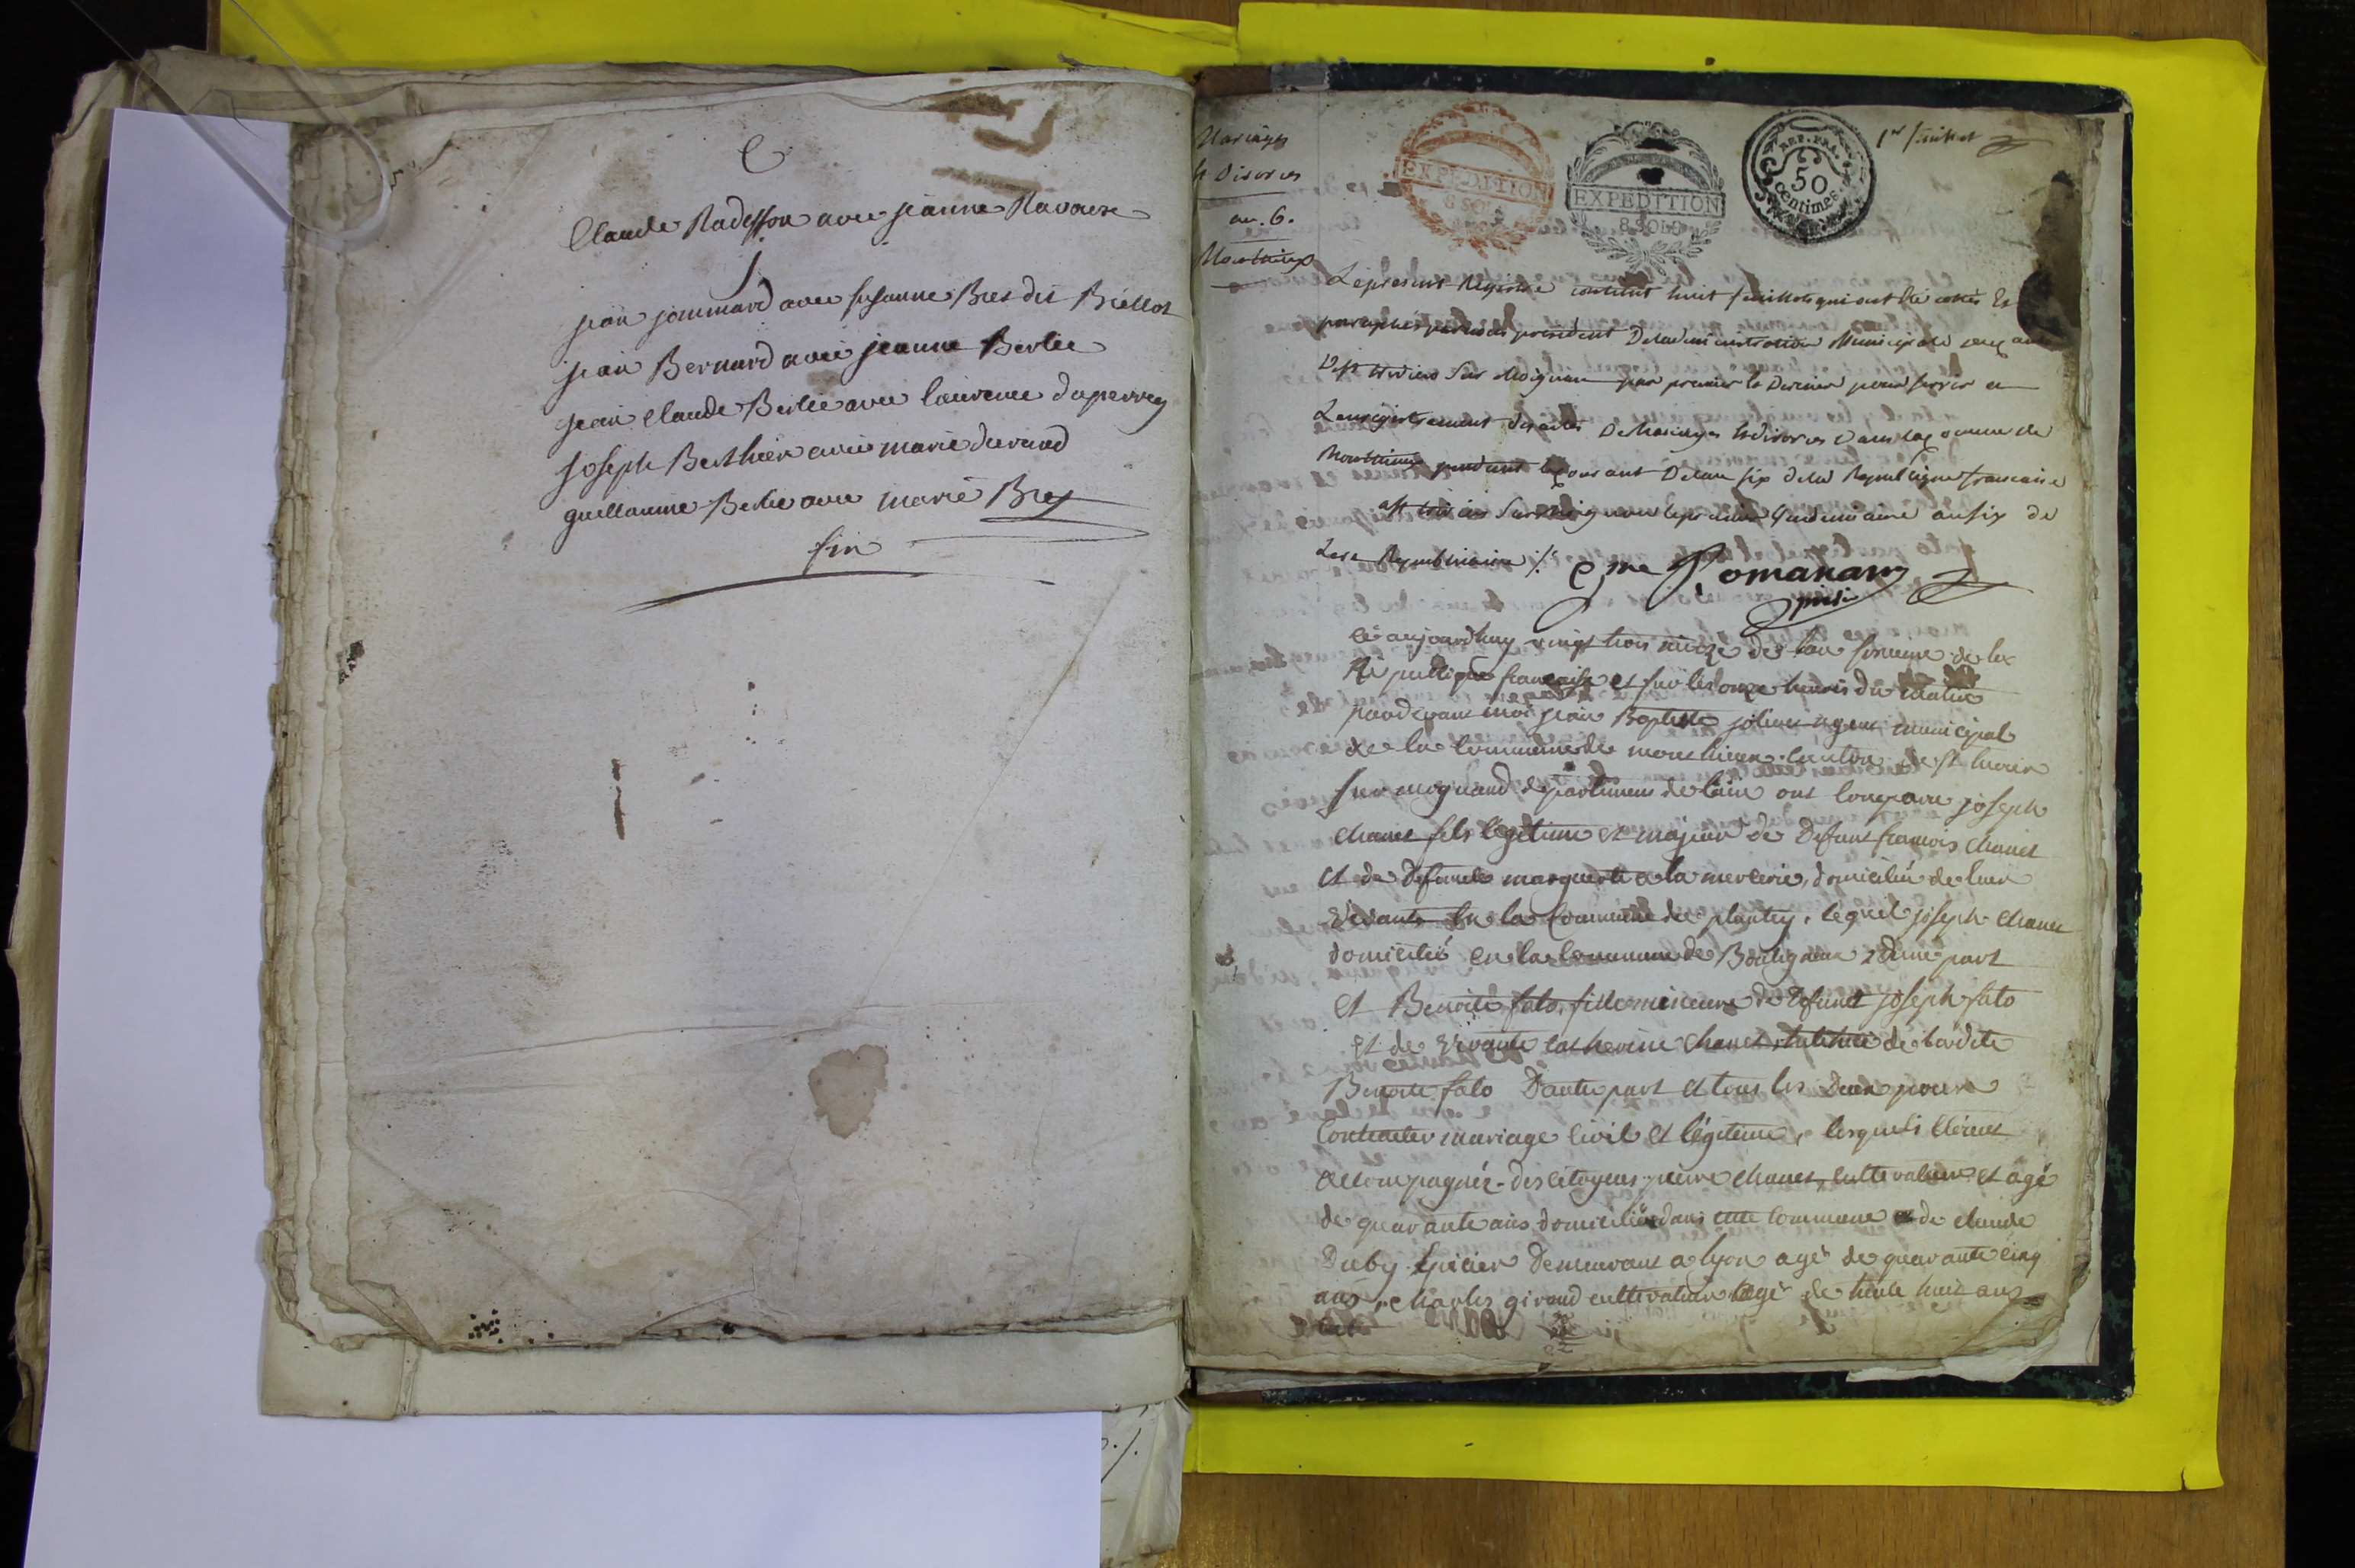 Claude Radisson avec jeanne Ravoux
jean jommard avec susanne Bres dit Brellot
jean Bernard avec jeanne Berlie
jean Claude Berlie avec laurence duperrey
joseph Berthier avec marie durand
guillaume Berlie avec marie Brey
fin
Mariages
et Divorces
an. 6.
Monthieux
EXPEDITION
8 SOLS
EXPEDITION
8 SOLS
REP. FRA.
50
centimes
1er feuillet
Le présent Registre contient huit feuillets qui ont été cottés Et
paraphés par nous président De l'administration Municipale du
De st trivier Sur Moignan par premier et Dernier pour servir a
L'enregistrement des actes De Mariages et divorces dans la Commune de
Monthieux pendant le courant De l'an six de la Republique francaise
a st trivier Sur Moignan le premier Vendemiaire an six de
L'ere Republicaine
président
cé aujourdhuy vingt trois de l'an sixieme de la
République francaise et sur les onze heures du matin
pardevant moi jean Baptiste jolivet agent municipal
de la Commune de monthieux canton de st trivier
sur mognand departement de l'ain ont Comparu joseph
chanet fils légitime et majeur de Defunt francois chanet
et de Defunte marguerite a la mercerie, domicilié de leur
vivants en la Commune de plantey, lequel joseph chanet
domicilié en la Commune de Bouligneux d'une part
et Benoite fato, fille mineure de Defunt joseph fato
et de vivante catherine chanet, tutrice de la dite
Benoite fato D'autre part et tous les Deux pour
Contracter mariage Civil et légitime, lesquels étoient
accompagnéz des citoyens pierre chanet, cultivateur et agé
de quarante ans domicilié dans cette Commune de claude
Duby Epicier Demeurant a lyon agé de quarante cinq
ans, charles giroud cultivateur agé de trente huit ans